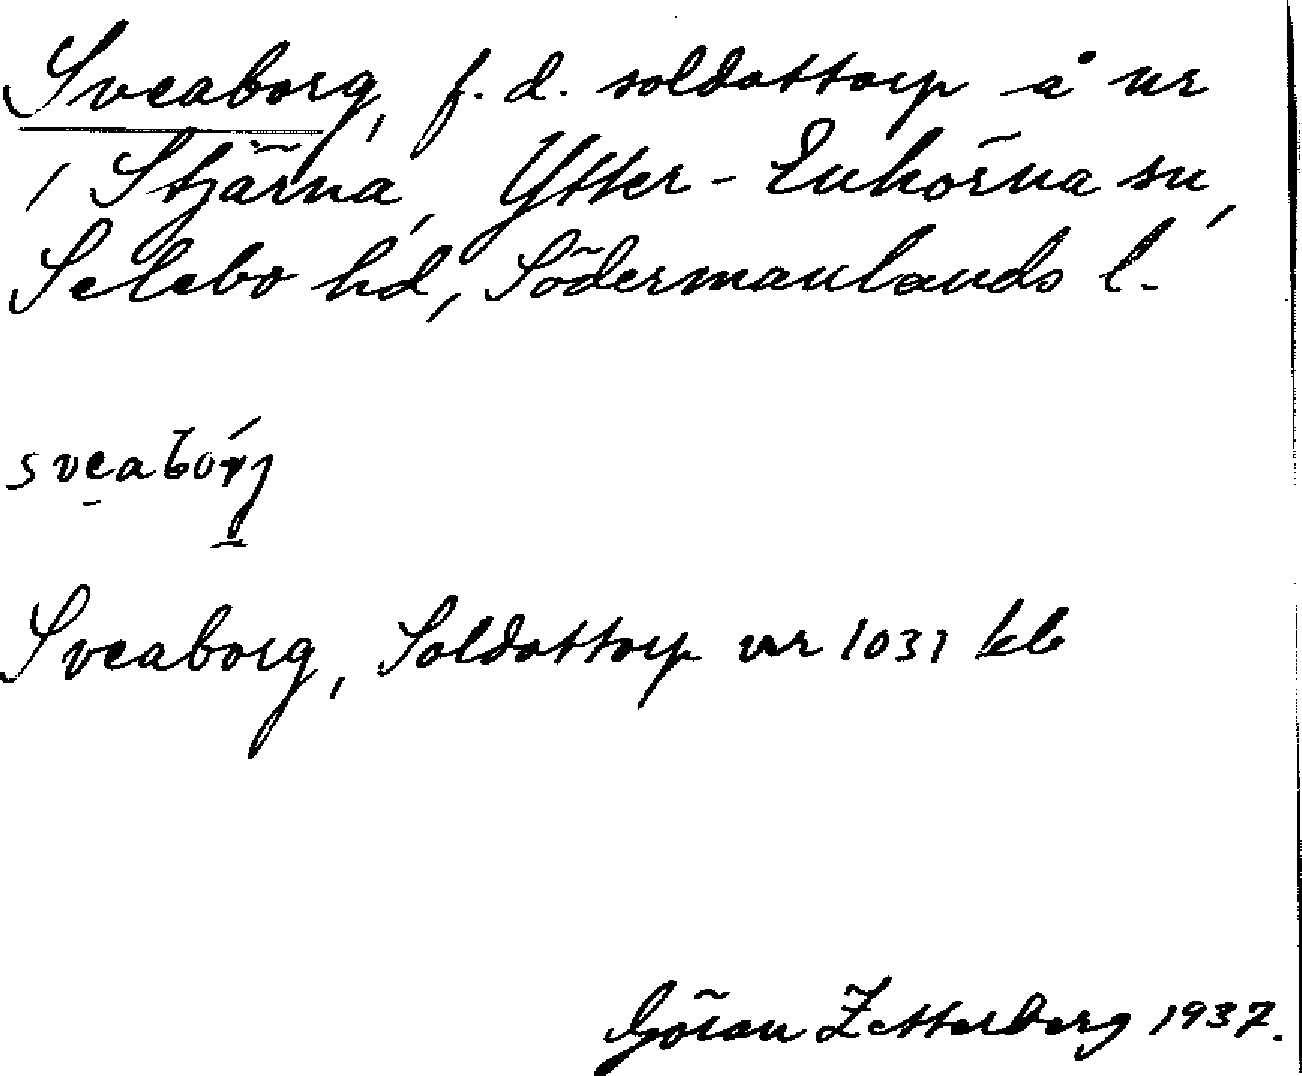 Sveaborg, f. d. soldattorp å nr
1 Stjärna, Ytter-Enhörna sn,
Selebo hd, Södermanlands l.
Sveaborg, Soldattorp nr 1031 kb
Göran Zetterberg 1937.